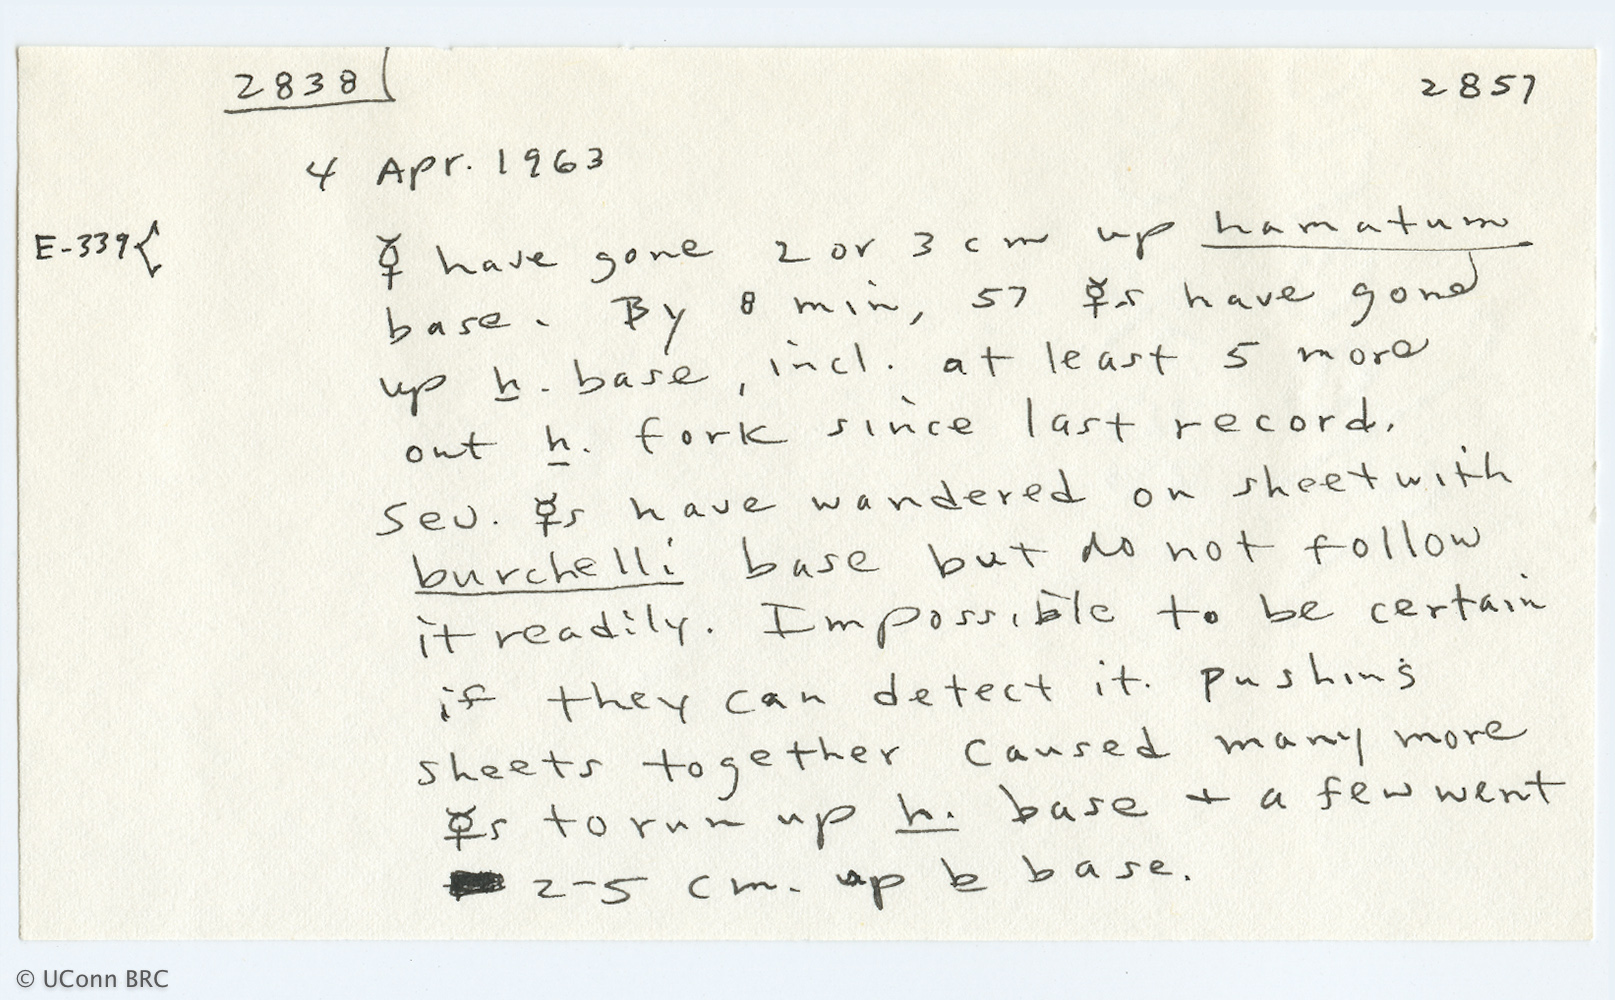 2838
2857
4 Apr. 1963
E-339{
☿ have gone 2 or 3 cm up hamatum
base. By 8 min, 57 ☿s have gone
up h. base, incl. at least 5 more
out h. fork since last record.
Sev. ☿s have wandered on sheet with
burchelli base but do not follow
it readily. Impossible to be certain
if they can detect it. Pushing
sheets together caused many more
☿s to run up h. base + a few went
2-5 cm. up b base.
© UConn BRC